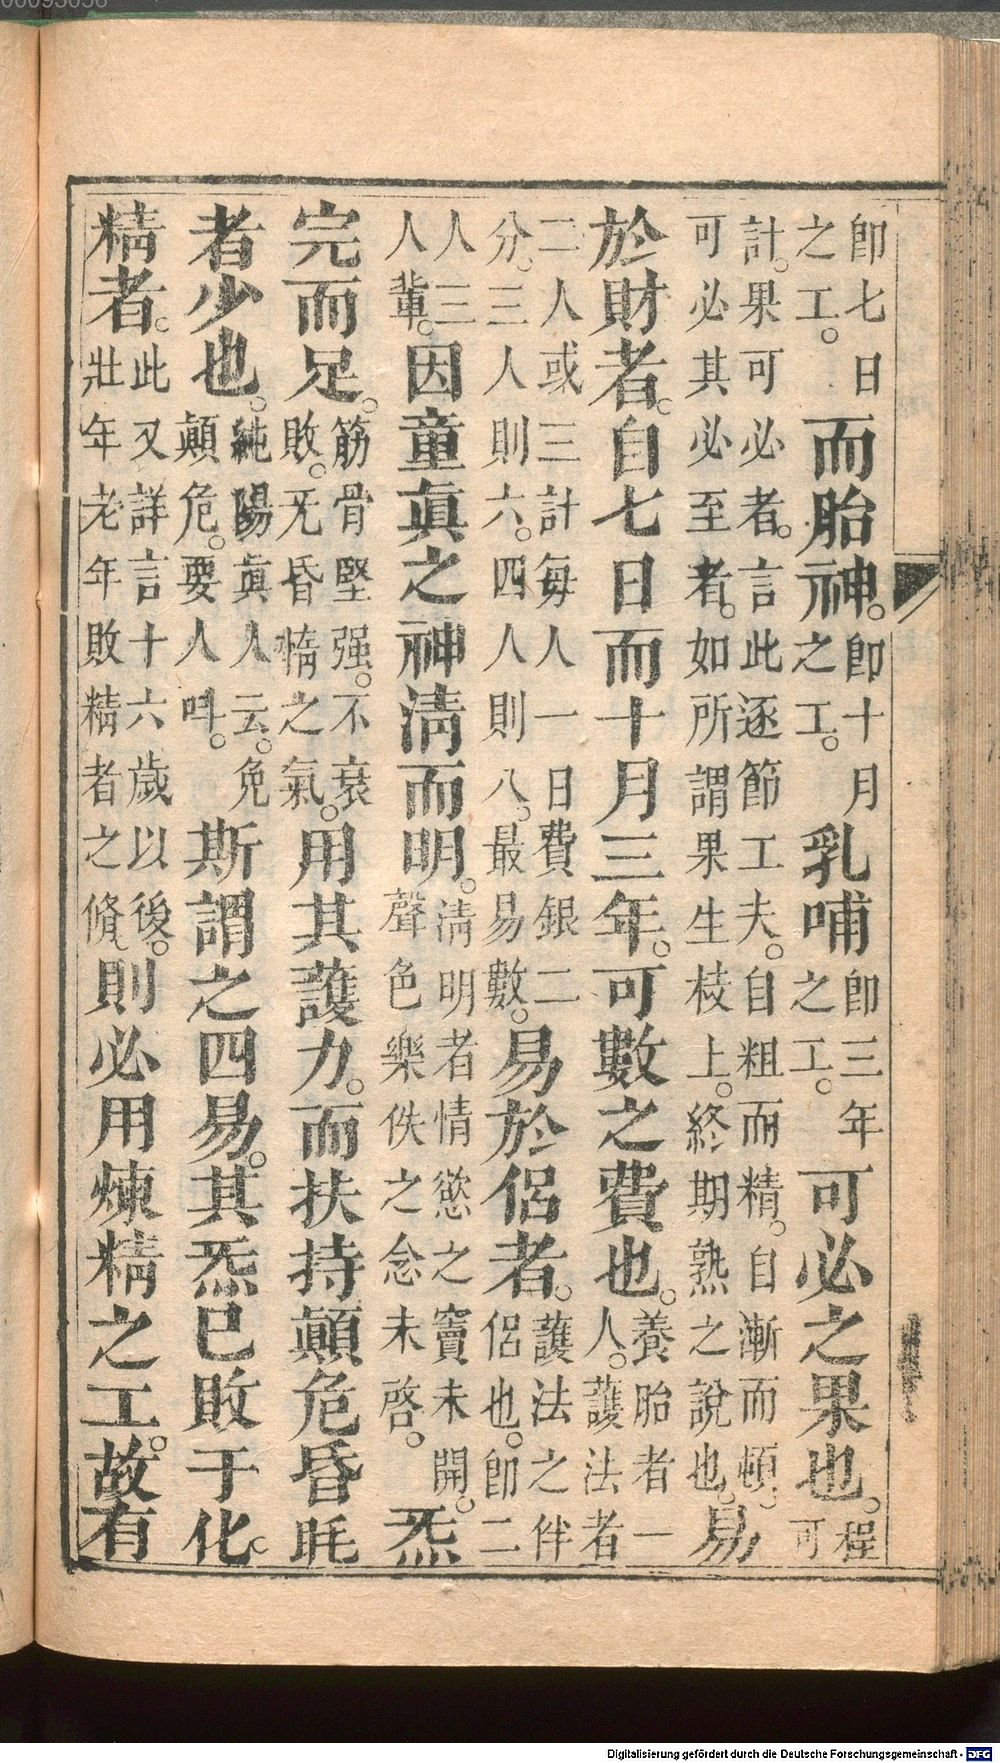 卽七日之工。而胎神。卽十月之工。乳哺卽三年之工。可必之果也。程可
計。果可必者。言此逐節工夫。自粗而精。自漸而頓。可必其必至者。如所謂果生枝上。終期熟之說也。易
於財者。自七日而十月三年。可數之費也。養胎者一人。護法者
二人或三計每人一日費銀二分。三人則六。四人則八。最易數。易於侶者。護法之伴侶也。卽二
人三人輩。因童眞之神淸而明。淸明者情慾之竇未開。聲色樂佚之念未啓。炁
完而足。筋骨堅强。不衰敗。无昏惰之氣。用其護力。而扶持顚危昏眊
者少也。純陽眞人云。免顚危。要人呌。斯謂之四易。其炁已敗于化
精者。此又詳言十六歲以後。壯年老年敗精者之修。則必用煉精之工。故有
00093036
Digitalisierung gefördert durch die Deutsche Forschungsgemeinschaft - DFG